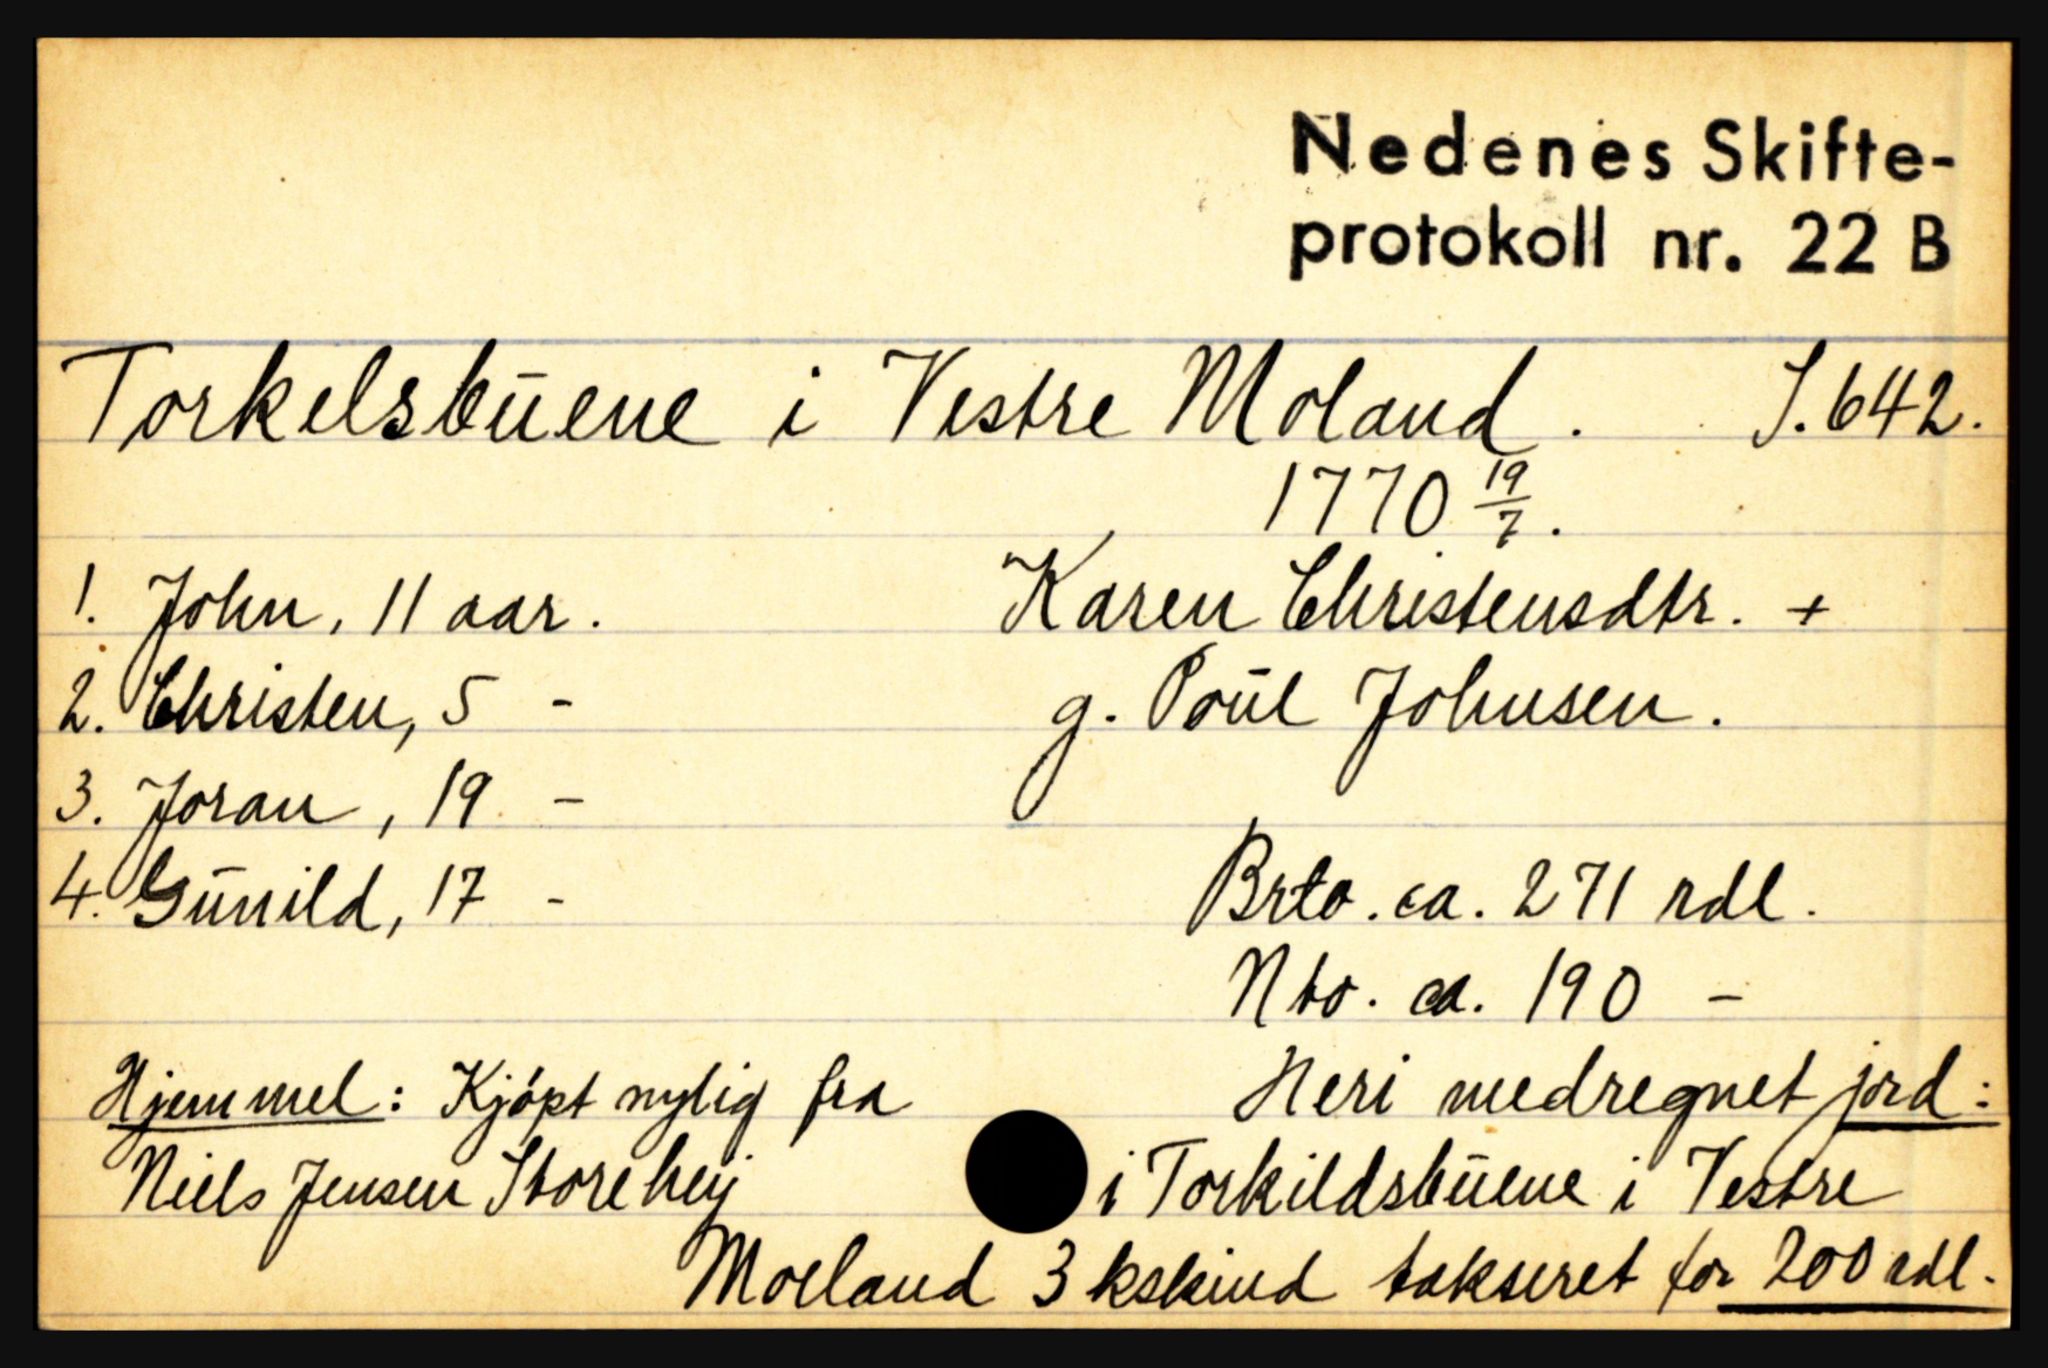 Nedenes Skifte-
protokoll nr. 22 B
Torkelsbūene i Vestre Moland. S. 642.
1770 19/7.
1. John, 11 aar.
2. Christen, 5 -
3. Joran, 19 -
4. Gūnild, 17 -
Karen Christensdtr. +
g. Poūl Johnsen.
Brto. ca. 271 rdl.
Nto. ca. 190 -
Hjemmel: Kjöpt nylig fra
Niels Jensen Storehej
Heri medregnet jord:
i Torkildsbūene i Vestre
Moeland 3 kskind takseret for 200 rdl.